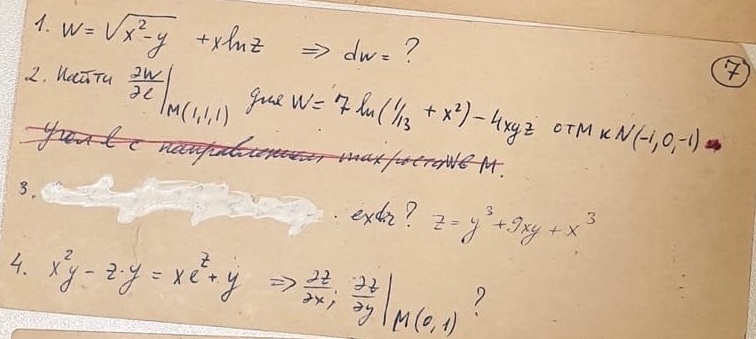 7
1. W = √(x²-y) + x ln z ⇒ dw = ?
2. Найти ∂w/∂l |M(1,1,1) для W = 7 ln(1/13 + x²) - 4xyz от M к N(-1,0,-1)
Угол l с направлением max роста W в M.
3. extr? z = y³ + 9xy + x³
4. x²y - z·y = xe^z + y ⇒ ∂z/∂x; ∂z/∂y |M(0,1) ?